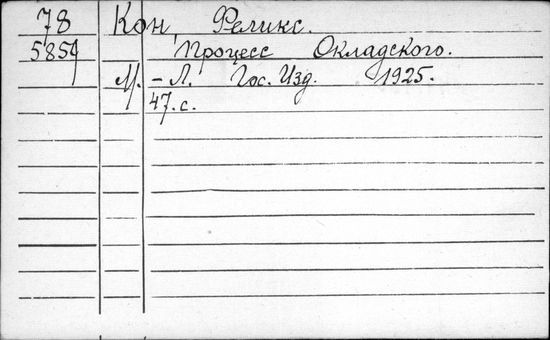 78 Кон, Феликс.
5859 Процесс Окладского.
М. - Л. Гос. Изд. 1925.
47. с.